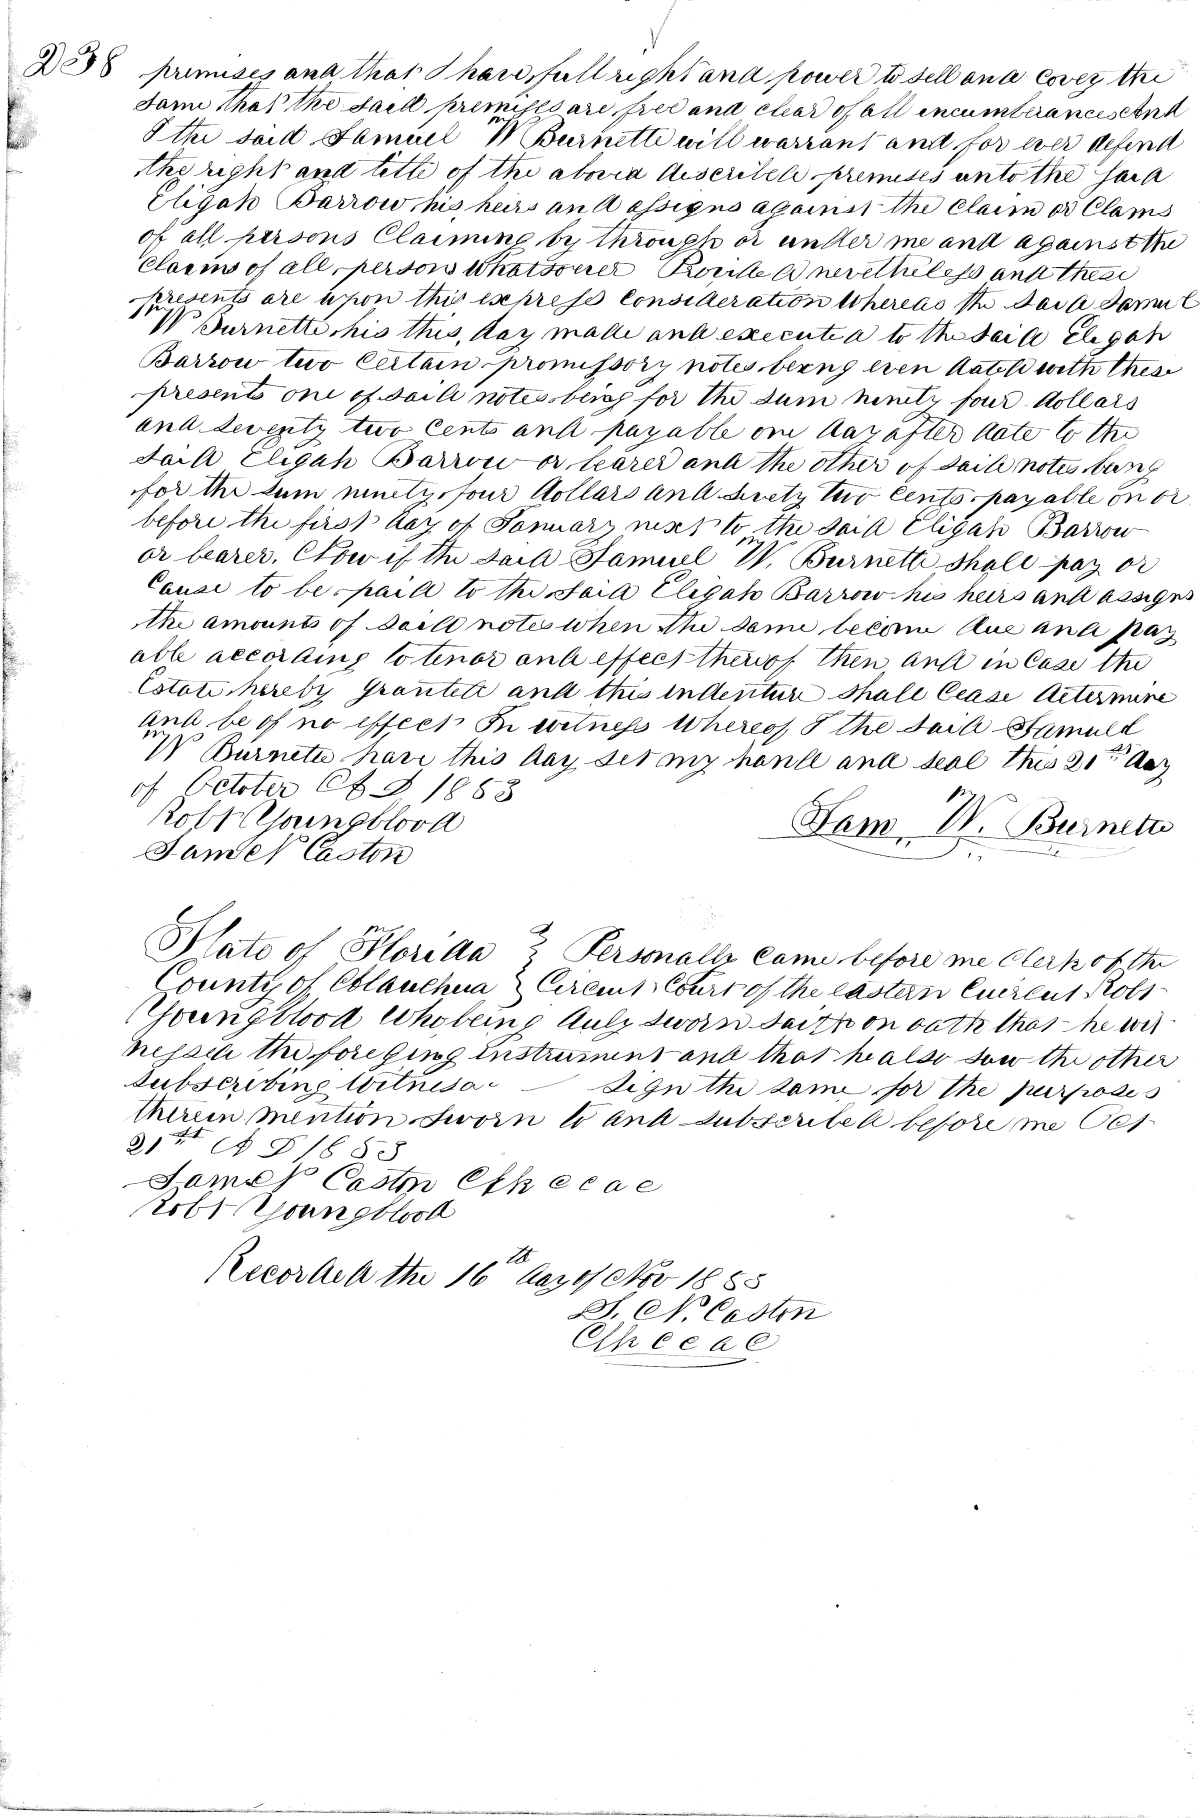 238 premises and that I have full right and power to sell and covey the
same that the said premises are free and clear of all incumberances And
I the said Samuel W Burnette will warrant and for ever defend
the right and title of the above described premises unto the said
Eligah Barrow his heirs and assigns against the claim or Clams
of all persons Claiming by through or under me and against the
claims of all persons whatsoever Provided nevertheless and these
presents are upon this express consideration Whereas the said Samul
W Burnette his this day made and executed to the said Eligah
Barrow two certain promissory notes being even dated with these
presents one of said notes being for the sum ninety four dollars
and seventy two Cents and payable one day after date to the
said Eligah Barrow or bearer and the other of said notes being
for the sum ninety four dollars and two cents payable on or
before the first day of January next to the said Eligah Barrow
or bearer. Now if the said Samuel W. Burnette shall pay or
Cause to be paid to the said Eligah Barrow his heirs and assigns
the amounts of said notes when the same become due and pay
able according to tenor and effect thereof then and in Case the
Estate hereby Granted and this indenture shall Cease determine
and be of no effect In witness Whereof I the said Samuel
W Burnete have this day set my hand and seal this 21st day
of October A D 1853
Robt Youngblood
James N Caston
Sam W. Burnette
State of Florida } Personally Came before me Clerk of the
County of Alauchua } Circuit Court of the eastern Robt
Youngblood who being duly sworn saith on oath that he wit
nessed the foreging instrument and that he also saw the other
subscribing witness sign the same for the purposes
therein mention sworn to and subscribed before me Oct
21st A D 1853
James N Caston Clk c c a c
Robt Youngblood
Recorded the 16th day of Nov 1853
J. N. Caston
Clk c c a c